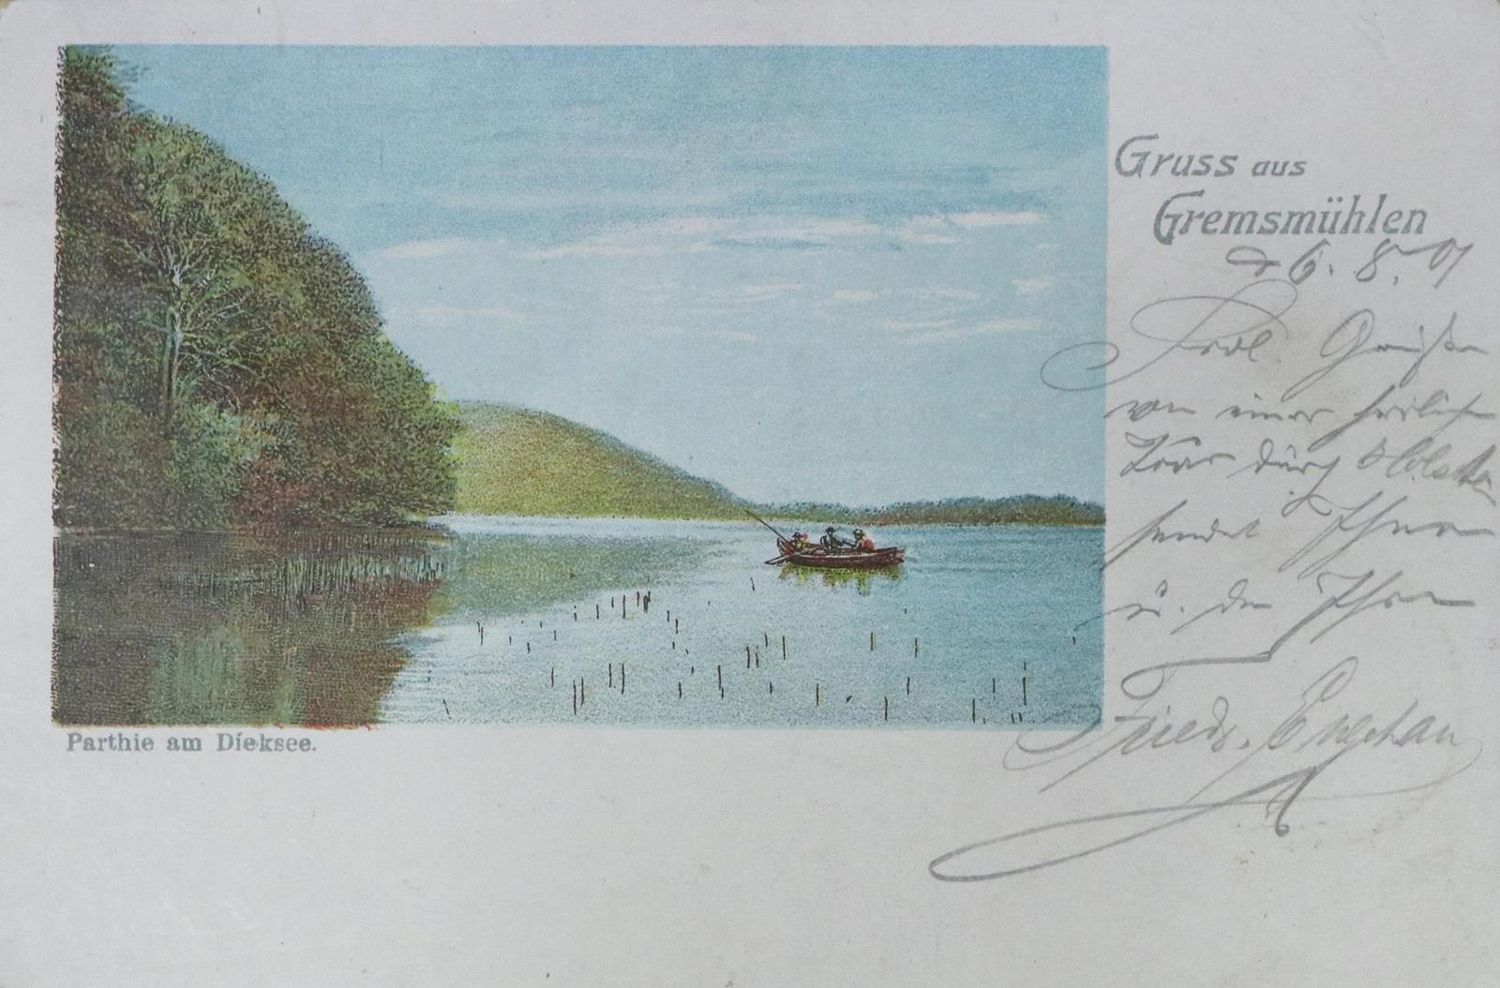 Gruss aus
Gremsmühlen
d 6. 8. 01
Frdl. Grüße
von einer herrlichen
Tour durch Holstein
sendet Ihnen
u. den Ihren
Friedr.
Parthie am Dieksee.